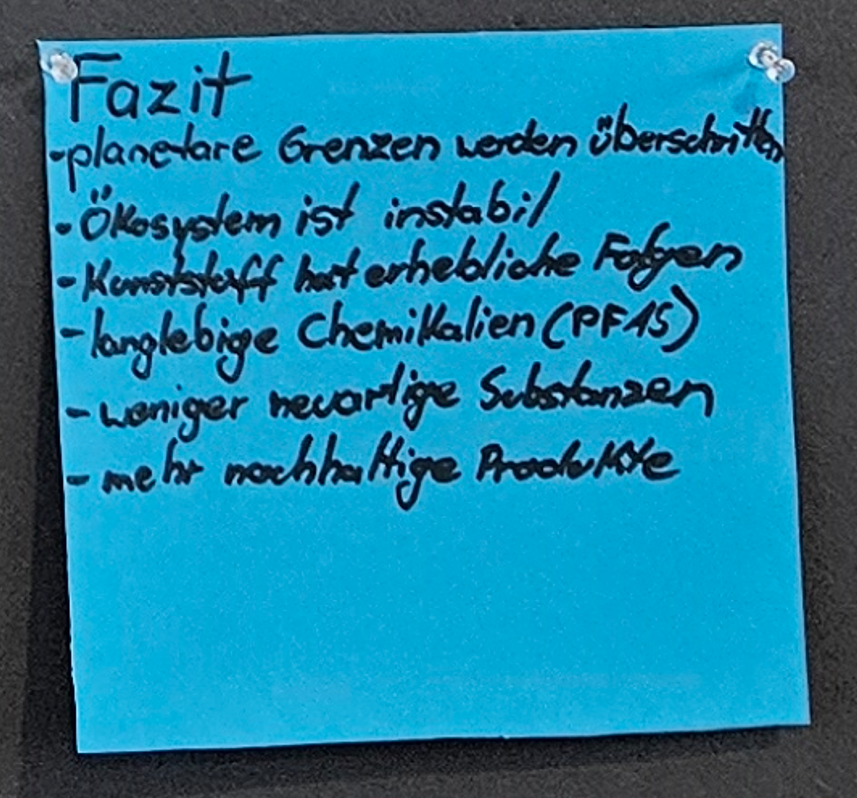 Fazit
-planetare Grenzen werden überschritten
- Ökosystem ist instabil
- Kunststoff hat erhebliche Folgen
- langlebige Chemikalien (PFAS)
- weniger neuartige Substanzen
- mehr nachhaltige Produkte